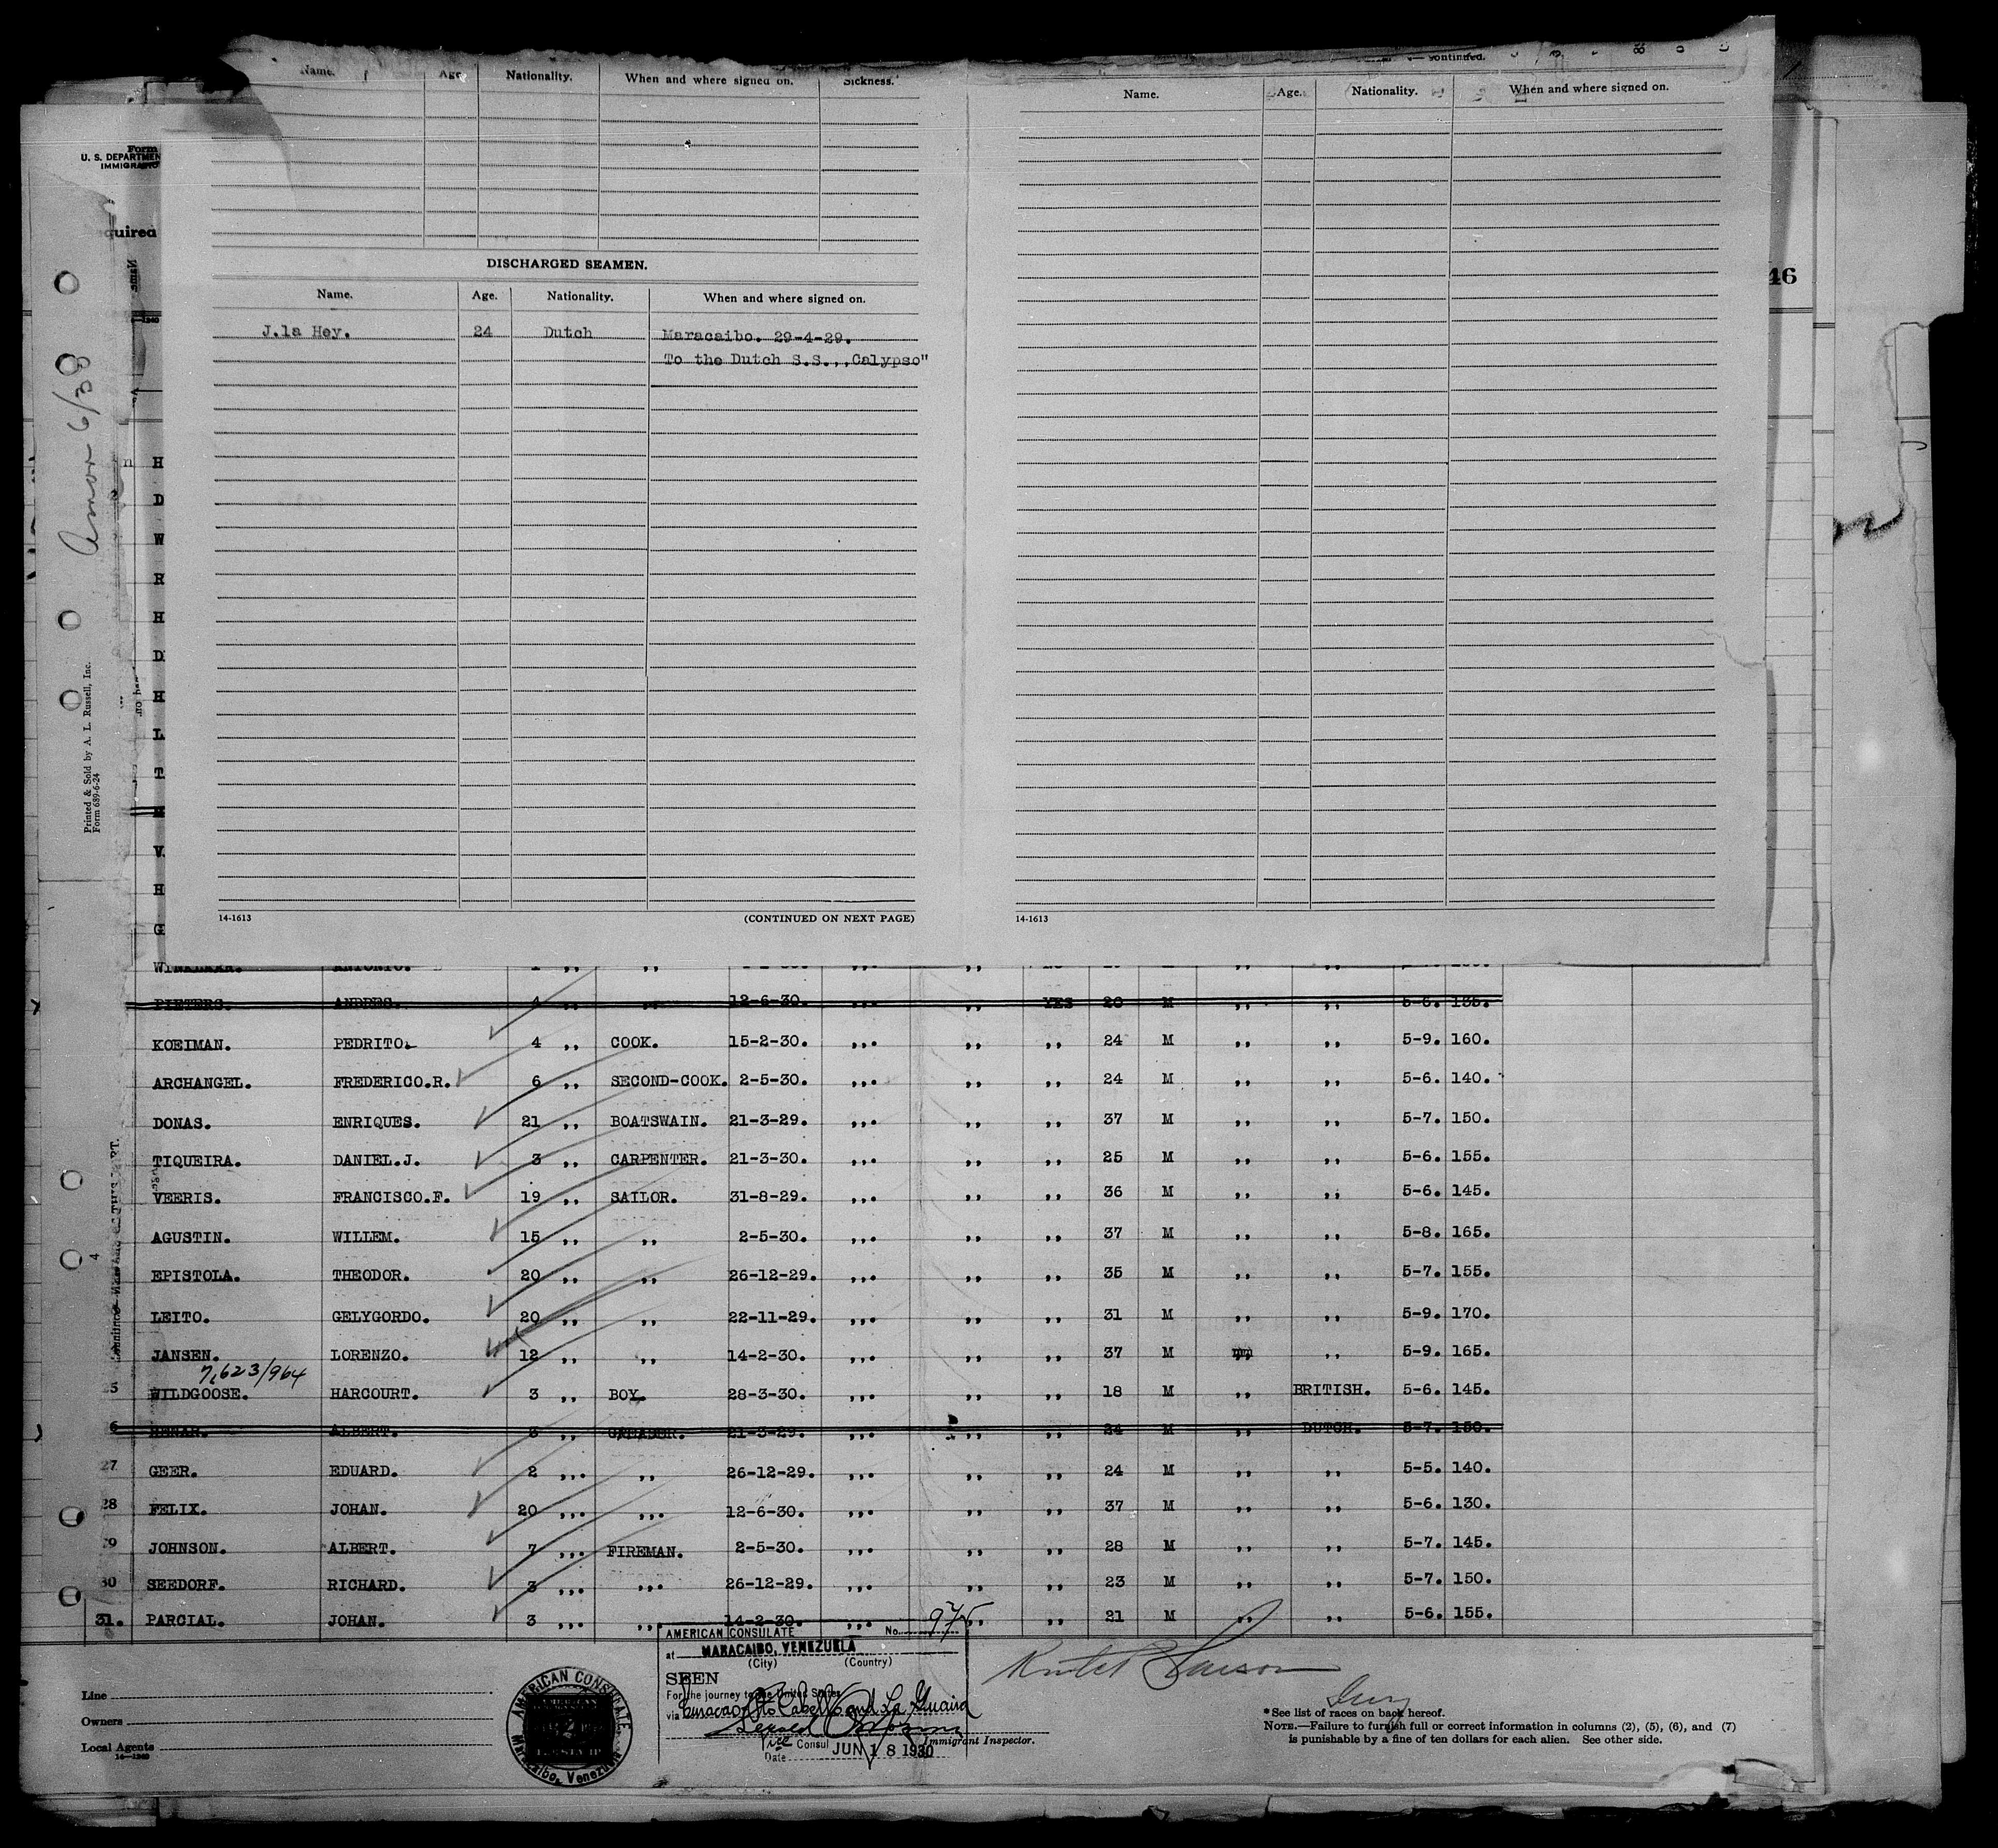 Name. Age Nationality. When and where signed on. Sickness.
DISCHARGED SEAMEN.
Name. Age. Nationality. When and where signed on.
J.la Hey. 24 Dutch Maracaibo. 29-4-29.
To the Dutch S.S.,,Calypso"
14-1613 (CONTINUED ON NEXT PAGE)
continued.
Name. Age. Nationality. When and where signed on.
14-1613
Form
U. S. DEPARTMEN
IMMIGRATIO
quired
46
Amor 6/30
Printed & Sold by A. L. Russell, Inc.
Form 689-6-24
H
D
W
R
H
D
H
L
T
V
H
G
ANTONIO.
PIETERS. ANDRES. 4 ,, ,, 12-6-30. ,,. ,, YES 20 M ,, ,, 5-6. 135.
KOEIMAN. PEDRITO. 4 ,, COOK. 15-2-30. ,,. ,, ,, 24 M ,, ,, 5-9. 160.
ARCHANGEL. FREDERICO.R. 6 ,, SECOND-COOK. 2-5-30. ,,. ,, ,, 24 M ,, ,, 5-6. 140.
DONAS. ENRIQUES. 21 ,, BOATSWAIN. 21-3-29. ,,. ,, ,, 37 M ,, ,, 5-7. 150.
TIQUEIRA. DANIEL.J. 3 ,, CARPENTER. 21-3-30. ,,. ,, ,, 25 M ,, ,, 5-6. 155.
VEERIS. FRANCISCO.F. 19 ,, SAILOR. 31-8-29. ,,. ,, ,, 36 M ,, ,, 5-6. 145.
AGUSTIN. WILLEM. 15 ,, ,, 2-5-30. ,,. ,, ,, 37 M ,, ,, 5-8. 165.
EPISTOLA. THEODOR. 20 ,, ,, 26-12-29. ,,. ,, ,, 35 M ,, ,, 5-7. 155.
LEITO. GELYGORDO. 20 ,, ,, 22-11-29. ,,. ,, ,, 31 M ,, ,, 5-9. 170.
JANSEN. LORENZO. 12 ,, ,, 14-2-30. ,,. ,, ,, 37 M ,, ,, 5-9. 165.
7,623/964
5 WILDGOOSE. HARCOURT. 3 ,, BOY. 28-3-30. ,,. ,, ,, 18 M ,, BRITISH. 5-6. 145.
6 ALBERT. 21-3-29. ,,. ,, ,, 24 M ,, DUTCH. 5-7. 150.
27 GEER. EDUARD. 2 ,,. ,, 26-12-29. ,,. ,, ,, 24 M ,, ,, 5-5. 140.
28 FELIX. JOHAN. 20 ,,. ,,. 12-6-30. ,,. ,, ,, 37 M ,, ,, 5-6. 130.
29 JOHNSON. ALBERT. 7 ,,. FIREMAN. 2-5-30. ,,. ,, ,, 28 M ,, ,, 5-7. 145.
30 SEEDORF. RICHARD. 3 ,,. ,,. 26-12-29. ,,. ,, ,, 23 M ,, ,, 5-7. 150.
31. PARCIAL. JOHAN. 3 ,,. ,,. 14-2-30. ,,. ,, ,, 21 M ,, ,, 5-6. 155.
Line
Owners
Local Agents
14-1240
AMERICAN CONSULATE
Maracaibo, Venezuela
AMERICAN CONSULATE No. 975
at MARACAIBO, VENEZUELA
(City) (Country)
SEEN
For the journey to the United States
via Curacao Pto Cabello and La Guaira
Vice Consul
Date JUN 18 1930
Immigrant Inspector.
*See list of races on back hereof.
NOTE.—Failure to furnish full or correct information in columns (2), (5), (6), and (7)
is punishable by a fine of ten dollars for each alien. See other side.